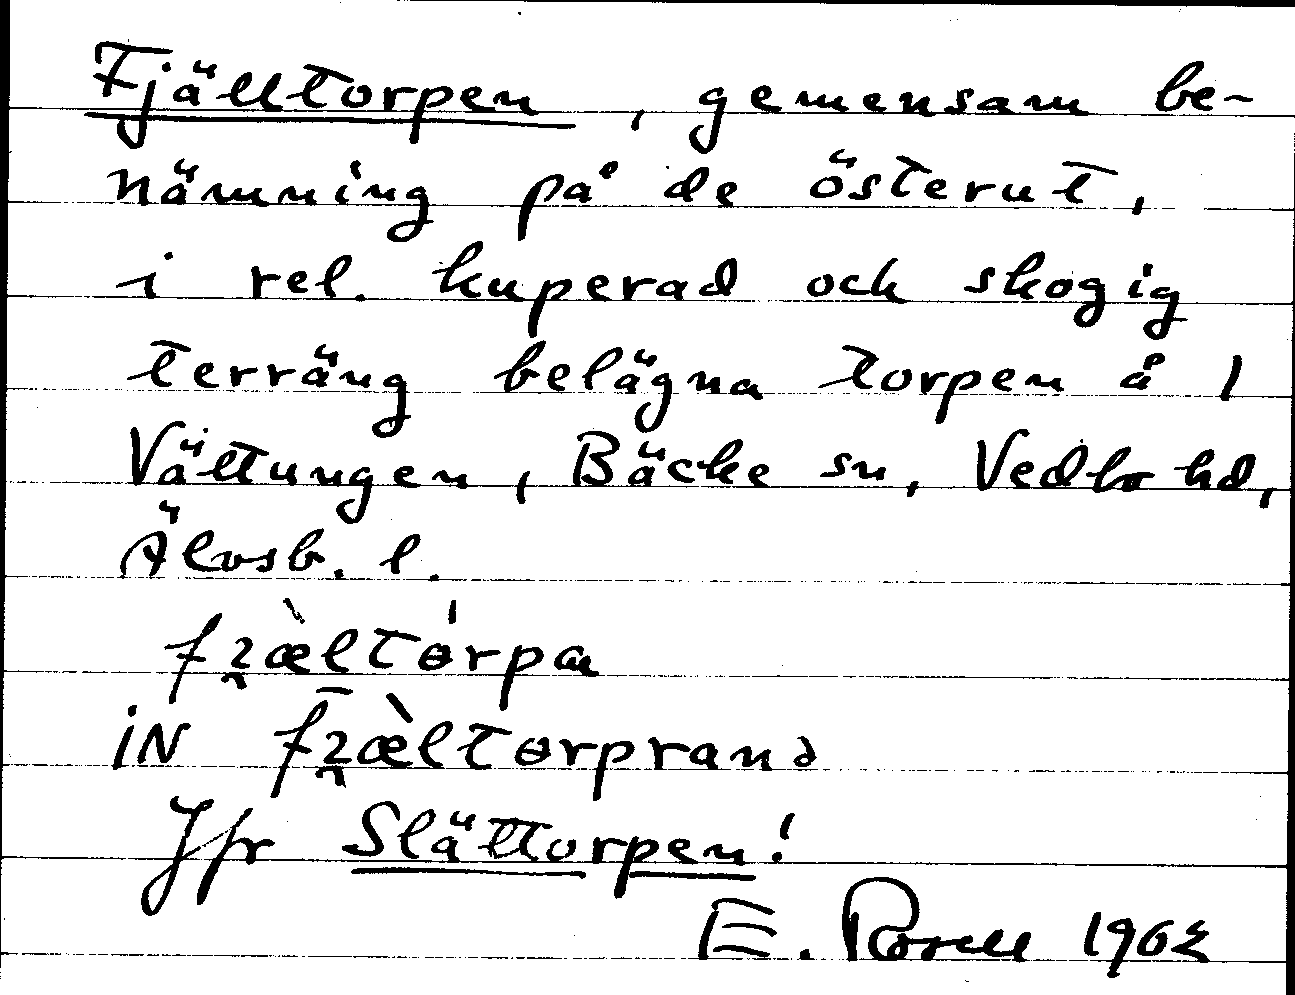 Fjälltorpen, gemensam be-
nämning på de österut,
i rel. kuperad och skogig
terräng belägna torpen å 1
Vättungen, Bäcke sn, Vedbo hd,
Älvsb. l.
fʒæ̀ltɵ́rpa
iN fʒæ̀ltɵrprana
Jfr Slättorpen!
E. Rosell 1962